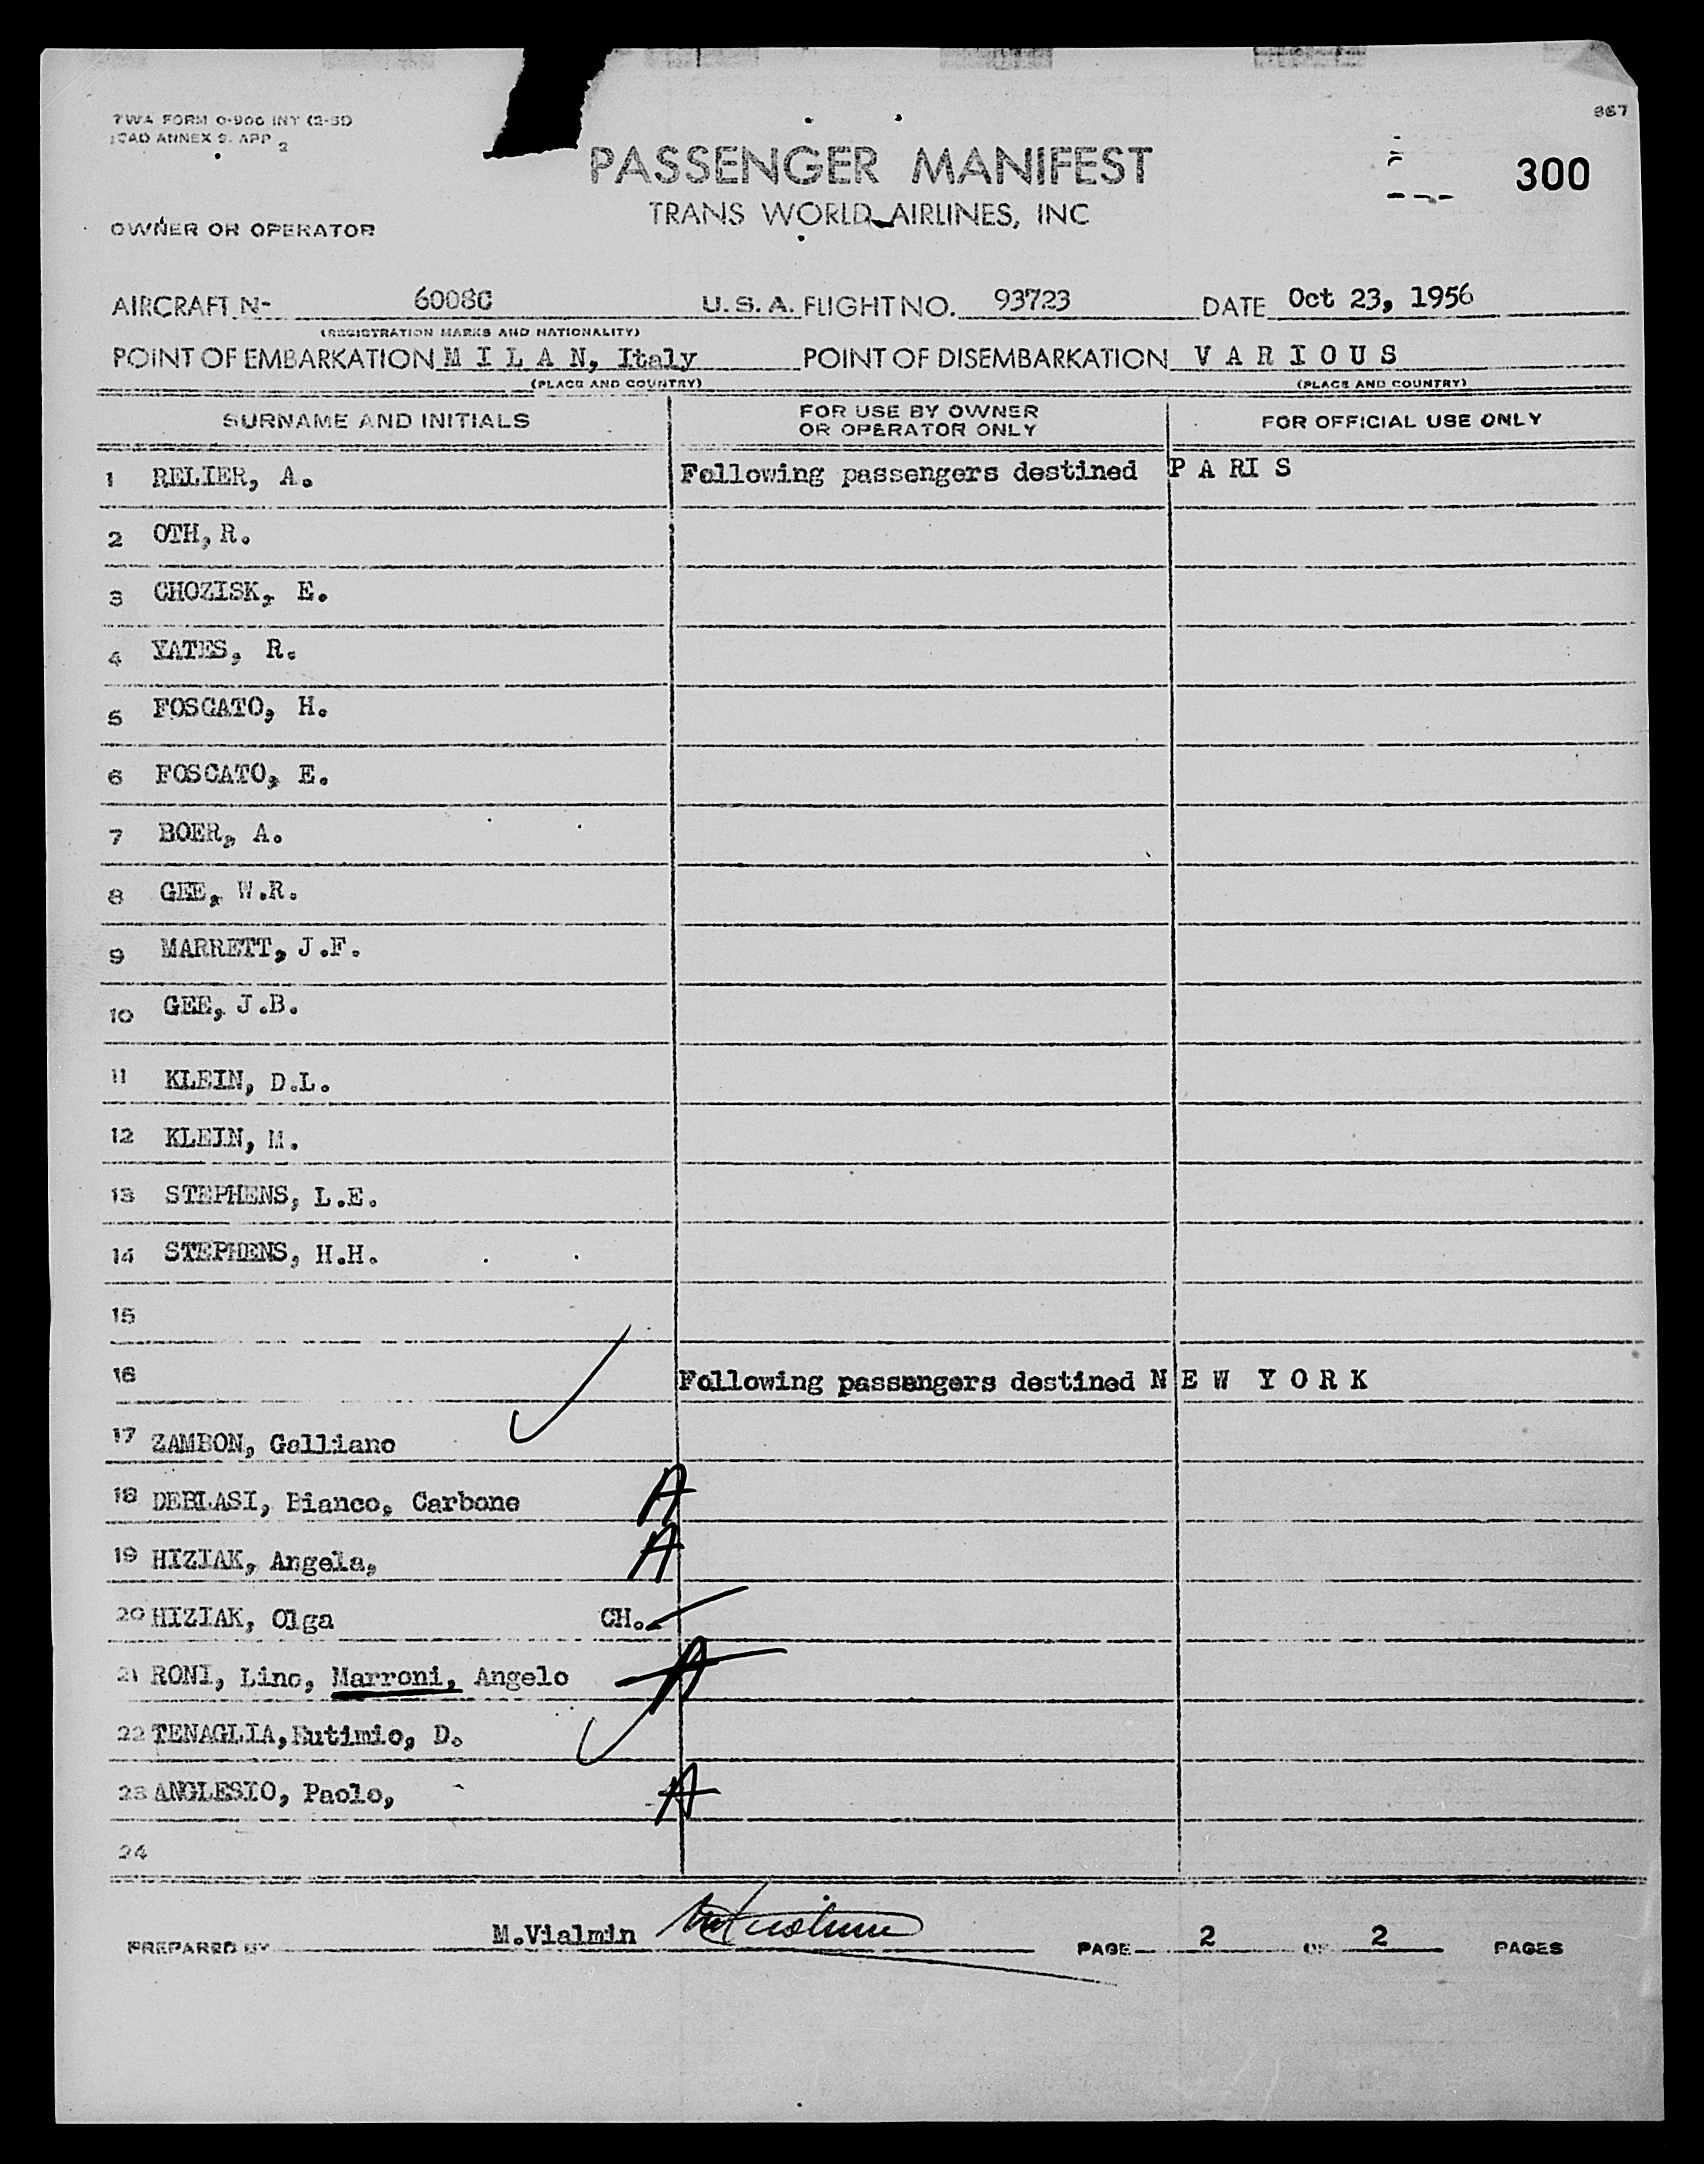 TWA FORM O-900 INT (2-51)
ICAO ANNEX 9. APP 2
867
PASSENGER MANIFEST
300
TRANS WORLD AIRLINES, INC
OWNER OR OPERATOR
AIRCRAFT Nº 6008C U.S.A. FLIGHT NO. 93723 DATE Oct 23, 1956
(REGISTRATION MARKS AND NATIONALITY)
POINT OF EMBARKATION M I L A N, Italy POINT OF DISEMBARKATION V A R I O U S
(PLACE AND COUNTRY) (PLACE AND COUNTRY)
SURNAME AND INITIALS FOR USE BY OWNER OR OPERATOR ONLY FOR OFFICIAL USE ONLY
1 RELIER, A. Following passengers destined P A RI S
2 OTH, R.
3 CHOZISK, E.
4 YATES, R.
5 FOSCATO, H.
6 FOSCATO, E.
7 BOER, A.
8 GEE, W.R.
9 MARRETT, J.F.
10 GEE, J.B.
11 KLEIN, D.L.
12 KLEIN, M.
13 STEPHENS, L.E.
14 STEPHENS, H.H.
15
16 Following passengers destined N E W Y O R K
17 ZAMBON, Galliano
18 DEBLASI, Bianco, Carbone A
19 HIZIAK, Angela, A
20 HIZIAK, Olga CH.
21 RONI, Lino, Marroni, Angelo A
22 TENAGLIA, Eutimio, D.
23 ANGLESIO, Paolo, A
24
PREPARED BY M.Vialmin PAGE 2 OF 2 PAGES